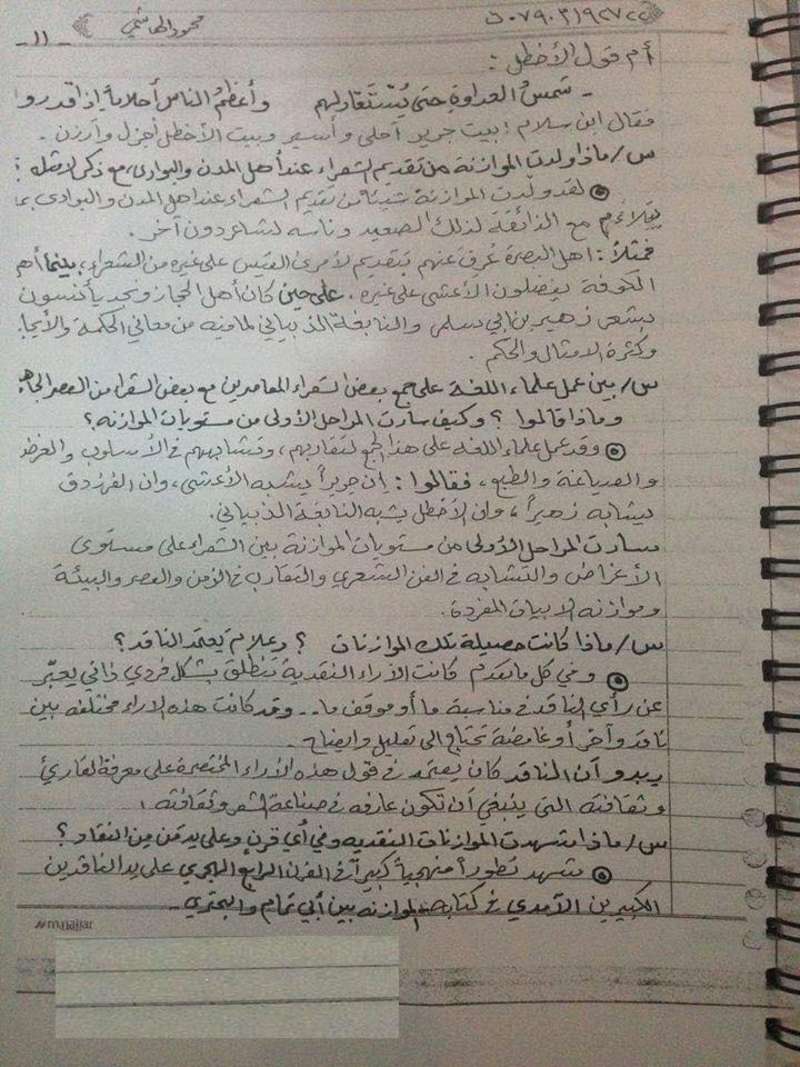 محمود الهاشمي ٠٧٩٠٣١٩٢٧٢٢ ت
- ١١ -
أم قول الأخطل :
- شمسُ العداوةِ حتى يُستقادَ لهم وأعظمُ الناس أحلاماً إذا قدروا
فقال ابن سلام : بيت جرير أحلى وأسير وبيت الأخطل أجزل وأرزن .
س/ ماذا ولدت الموازنة من تقديم الشعراء عند أهل المدن والبوادي، مع ذكر لأمثلة ؟
لقد ولّدت الموازنة شيئاً من تقديم الشعراء عند اهل المدن والبوادي بما
يتلاءم مع الذائقة لذلك الصعيد وناسه لشاعر دون آخر .
فمثلاً : اهل البصرة عُرف عنهم بتقديم لأمرئ القيس على غيره من الشعراء، بينما أهل
الكوفة يفضلون الأعشى على غيره ، على حين كان أهل الحجاز ونجد يأنسون
بشعر زهير بن ابي سلمى والنابغة الذبياني لما فيه من معاني الحكمة والأيجاز
وكثرة الامثال والحكم .
س/ بين عمل علماء اللغة على جمع بعض الشعراء المعاصرين مع بعض الشعراء من العصر الجاهلي
وماذا قالوا ؟ وكيف سارت المراحل الأولى من مستويات الموازنه ؟
وقد عمل علماء اللغه على هذا الجمع لتقاربهم ، وتشابههم في الأسلوب والغرض
والصياغة والطبع ، فقالوا : إن جريراً يشبه الأعشى ، وان الفرزدق
يشابه زهيراً ، وان الأخطل يشبه النابغة الذبياني .
سارت المراحل الأولى من مستويات الموازنة بين الشعراء على مستوى
الأغراض والتشابه في الفن الشعري والتقارب في الزمن والعصر والبيئة
وموازنه الابيات المفردة .
س/ ماذا كانت حصيلة تلك الموازنات ؟ وعلامَ يعتمد الناقد ؟
وفي كل ما تقدم كانت الآراء النقدية تنطلق بشكل فردي ذاتي يعبّر
عن رأي الناقد في مناسبة ما أو موقف ما .. وقد كانت هذه الاراء مختلفه بين
ناقد وآخر أو غامضة تحتاج الى تعليل وايضاح .
يبدو أن الناقد كان يعتمد في قول هذه الأراء المختصرة على معرفة القارئ
وثقافته التي ينبغي أن تكون عارفه في صناعة الشعر وثقافته .
س/ ماذا شهدت الموازنات النقديه وفي أي قرنٍ وعلى يد مَن مِن النقاد ؟
شهد تطوراً منهجياً كبيراً في القرن الرابع الهجري على يد الناقدين
الكبيرين الآمدي في كتابه الموازنه بين أبي تمام والبحتري .